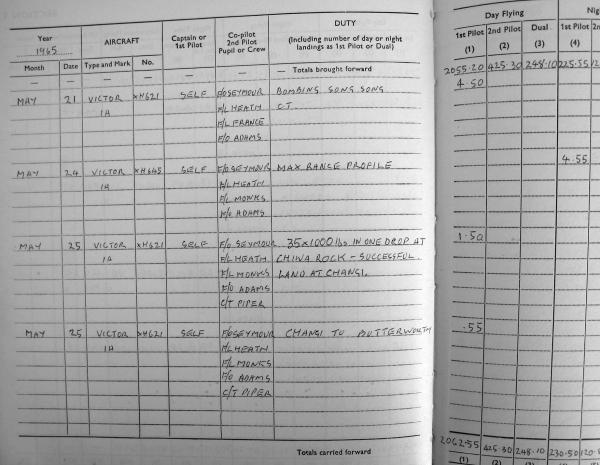 Year 1965
AIRCRAFT
Captain or 1st Pilot
Co-pilot 2nd Pilot Pupil or Crew
DUTY (Including number of day or night landings as 1st Pilot or Dual)
Day Flying
Month Date Type and Mark No.
1st Pilot 2nd Pilot Dual 1st Pilot
(1) (2) (3) (4)
— — — — — — — Totals brought forward 2055.20 425.30 248.10 225.55
MAY 21 VICTOR XH621 SELF F/O SEYMOUR BOMBING SONG SONG 4.50
1A F/L HEATH C.T.
F/L FRANCE
F/O ADAMS
MAY 24 VICTOR XH645 SELF F/O SEYMOUR MAX RANGE PROFILE 4.55
1A F/L HEATH
F/L MONKS
F/O ADAMS
MAY 25 VICTOR XH621 SELF F/O SEYMOUR 35x1000 lbs IN ONE DROP AT 1.50
1A F/L HEATH CHINA ROCK - SUCCESSFUL.
F/L MONKS LAND AT CHANGI.
F/O ADAMS
C/T PIPER
MAY 25 VICTOR XH621 SELF F/O SEYMOUR CHANGI TO BUTTERWORTH .55
1A F/L HEATH
F/L MONKS
F/O ADAMS
C/T PIPER
Totals carried forward 2062.55 425.30 248.10 230.50
(1) (2) (3) (4)